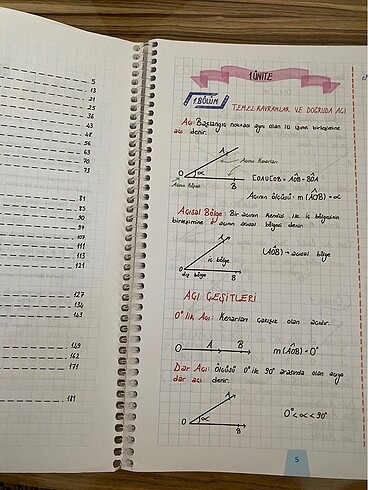 5
13
21
25
36
43
48
56
63
70
73
81
85
90
99
107
111
113
121
127
134
143
149
162
171
181
1.ÜNİTE
1.BÖLÜM
TEMEL KAVRAMLAR VE DOĞRUDA AÇI
Açı: Başlangıç noktası aynı olan iki ışının birleşimine
açı denir.
A
Açının Kenarları
α
O
B
Açının Köşesi
[OA∪[OB = AÔB = BÔA
Açının ölçüsü: m(AÔB) = α
Açısal Bölge: Bir açının kendisi ile iç bölgesinin
birleşimine o açının açısal bölgesi denir.
A
iç bölge
O
B
dış bölge
(AÔB) → açısal bölge
AÇI ÇEŞİTLERİ
0° lik Açı: Kenarları çakışık olan açıdır.
O A B
m(AÔB) = 0°
Dar Açı: Ölçüsü 0° ile 90° arasında olan açıya
dar açı denir.
A
α
O
B
0° < α < 90°
5